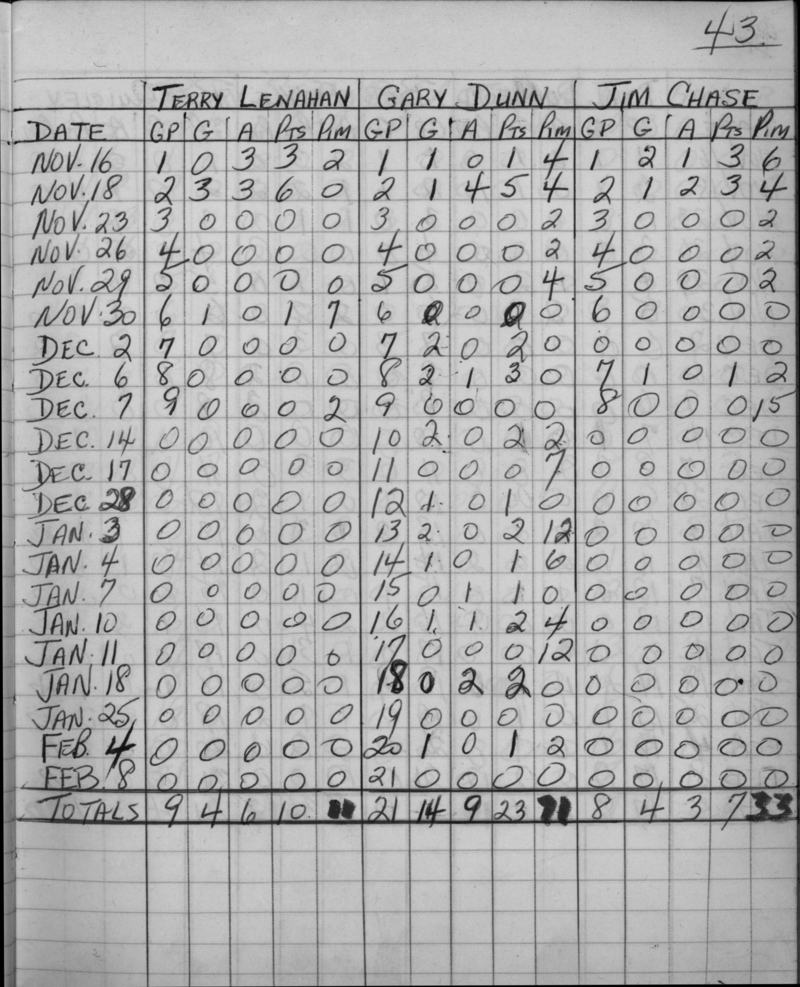 43.
TERRY LENAHAN GARY DUNN JIM CHASE
DATE GP G A PTS PIM GP G A PTS PIM GP G A PTS PIM
NOV. 16 1 0 3 3 2 1 1 0 1 4 1 2 1 3 6
NOV. 18 2 3 3 6 0 2 1 4 5 4 2 1 2 3 4
NOV. 23 3 0 0 0 0 3 0 0 0 2 3 0 0 0 2
NOV. 26 4 0 0 0 0 4 0 0 0 2 4 0 0 0 2
NOV. 29 5 0 0 0 0 5 0 0 0 4 5 0 0 0 2
NOV. 30 6 1 0 1 7 6 0 0 0 0 6 0 0 0 0
DEC. 2 7 0 0 0 0 7 2 0 2 0 0 0 0 0 0
DEC. 6 8 0 0 0 0 8 2 1 3 0 7 1 0 1 2
DEC. 7 9 0 0 0 2 9 0 0 0 0 8 0 0 0 15
DEC. 14 0 0 0 0 0 10 2 0 2 2 0 0 0 0 0
DEC. 17 0 0 0 0 0 11 0 0 0 7 0 0 0 0 0
DEC. 28 0 0 0 0 0 12 1 0 1 0 0 0 0 0 0
JAN. 3 0 0 0 0 0 13 2 0 2 12 0 0 0 0 0
JAN. 4 0 0 0 0 0 14 1 0 1 6 0 0 0 0 0
JAN. 7 0 0 0 0 0 15 0 1 1 0 0 0 0 0 0
JAN. 10 0 0 0 0 0 16 1 1 2 4 0 0 0 0 0
JAN. 11 0 0 0 0 0 17 0 0 0 12 0 0 0 0 0
JAN. 18 0 0 0 0 0 18 0 2 2 0 0 0 0 0 0
JAN. 25 0 0 0 0 0 19 0 0 0 0 0 0 0 0 0
FEB. 4 0 0 0 0 0 20 1 0 1 2 0 0 0 0 0
FEB. 8 0 0 0 0 0 21 0 0 0 0 0 0 0 0 0
TOTALS 9 4 6 10 11 21 14 9 23 71 8 4 3 7 33